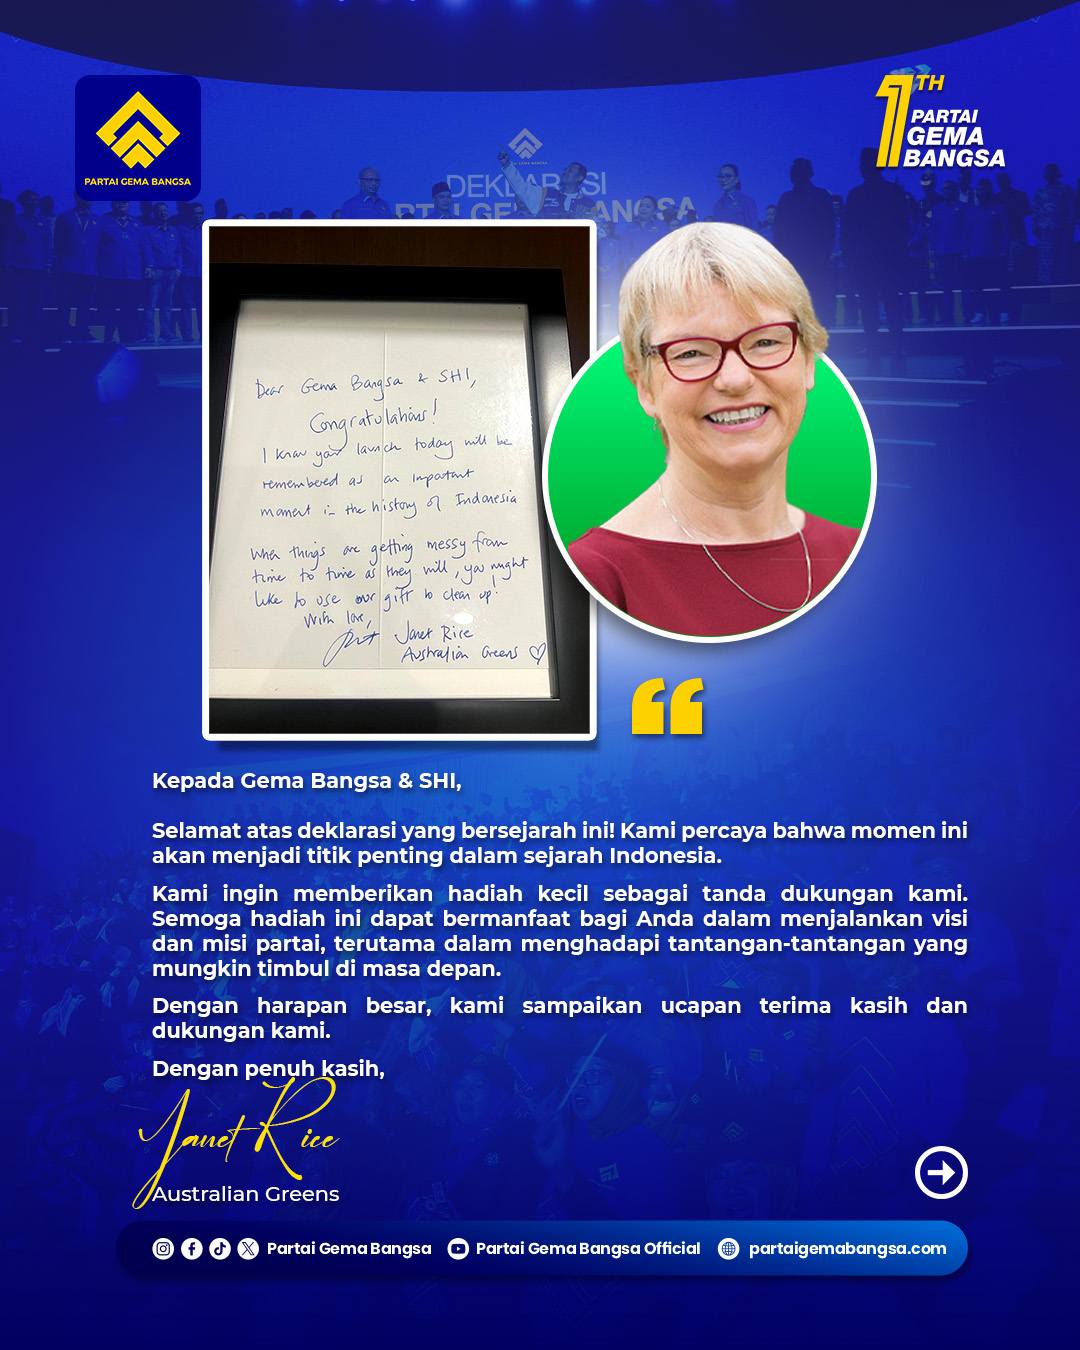 PARTAI GEMA BANGSA
1TH
PARTAI
GEMA
BANGSA
DEKLARASI
Dear Gema Bangsa & SHI,
Congratulations!
I know your launch today will be
remembered as an important
moment in the history of Indonesia
When things are getting messy from
time to time as they will, you might
like to use our gift to clean up!
With love,
Janet Rice
Australian Greens
Kepada Gema Bangsa & SHI,
Selamat atas deklarasi yang bersejarah ini! Kami percaya bahwa momen ini
akan menjadi titik penting dalam sejarah Indonesia.
Kami ingin memberikan hadiah kecil sebagai tanda dukungan kami.
Semoga hadiah ini dapat bermanfaat bagi Anda dalam menjalankan visi
dan misi partai, terutama dalam menghadapi tantangan-tantangan yang
mungkin timbul di masa depan.
Dengan harapan besar, kami sampaikan ucapan terima kasih dan
dukungan kami.
Dengan penuh kasih,
Janet Rice
Australian Greens
Partai Gema Bangsa Partai Gema Bangsa Official partaigemabangsa.com